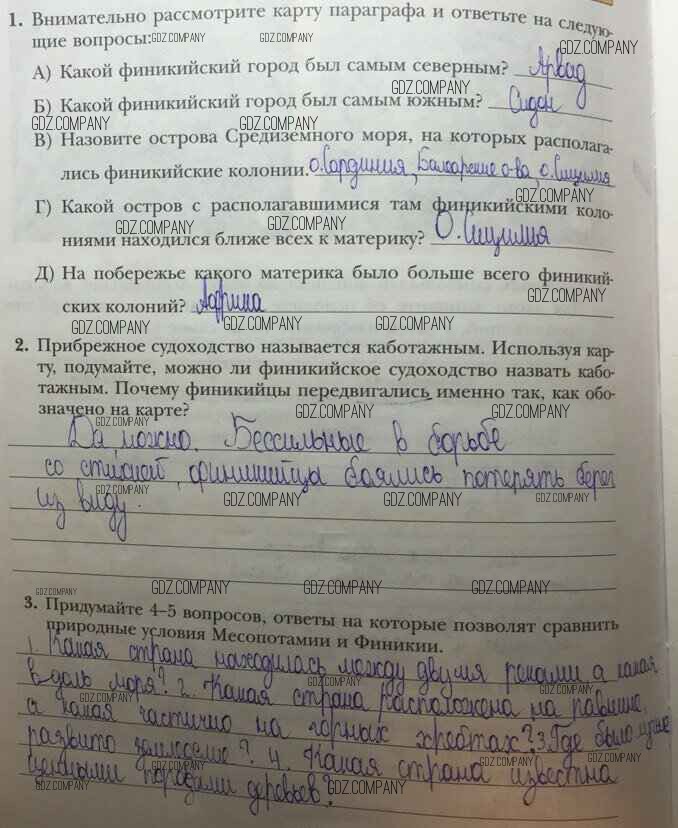 1. Внимательно рассмотрите карту параграфа и ответьте на следую-
щие вопросы: GDZ.COMPANY GDZ.COMPANY
GDZ.COMPANY
А) Какой финикийский город был самым северным? Арвад
GDZ.COMPANY
Б) Какой финикийский город был самым южным? Сидон
GDZ.COMPANY GDZ.COMPANY
В) Назовите острова Средиземного моря, на которых располага-
лись финикийские колонии. о. Сардиния, Балеарские о-ва, о. Сицилия
GDZ.COMPANY
Г) Какой остров с располагавшимися там финикийскими коло-
GDZ.COMPANY GDZ.COMPANY
ниями находился ближе всех к материку? О. Сицилия
GDZ.COMPANY
Д) На побережье какого материка было больше всего финикий-
GDZ.COMPANY
ских колоний? Африка
GDZ.COMPANY GDZ.COMPANY GDZ.COMPANY
2. Прибрежное судоходство называется каботажным. Используя кар-
ту, подумайте, можно ли финикийское судоходство назвать кабо-
тажным. Почему финикийцы передвигались именно так, как обо-
значено на карте? GDZ.COMPANY GDZ.COMPANY
GDZ.COMPANY
Да, можно. Бессильные в борьбе
GDZ.COMPANY
со стихией, финикийцы боялись потерять берег
GDZ.COMPANY GDZ.COMPANY GDZ.COMPANY GDZ.COMPANY
из виду.
GDZ.COMPANY GDZ.COMPANY GDZ.COMPANY GDZ.COMPANY
3. Придумайте 4–5 вопросов, ответы на которые позволят сравнить
природные условия Месопотамии и Финикии.
1. Какая страна находилась между двумя реками а какая
GDZ.COMPANY
вдоль моря? 2. Какая страна расположена на равнине,
GDZ.COMPANY
а какая частично на горных хребтах? 3. Где было лучше
развито земледелие? 4. Какая страна известна
GDZ.COMPANY GDZ.COMPANY GDZ.COMPANY GDZ.COMPANY
ценными породами деревьев?
GDZ.COMPANY GDZ.COMPANY